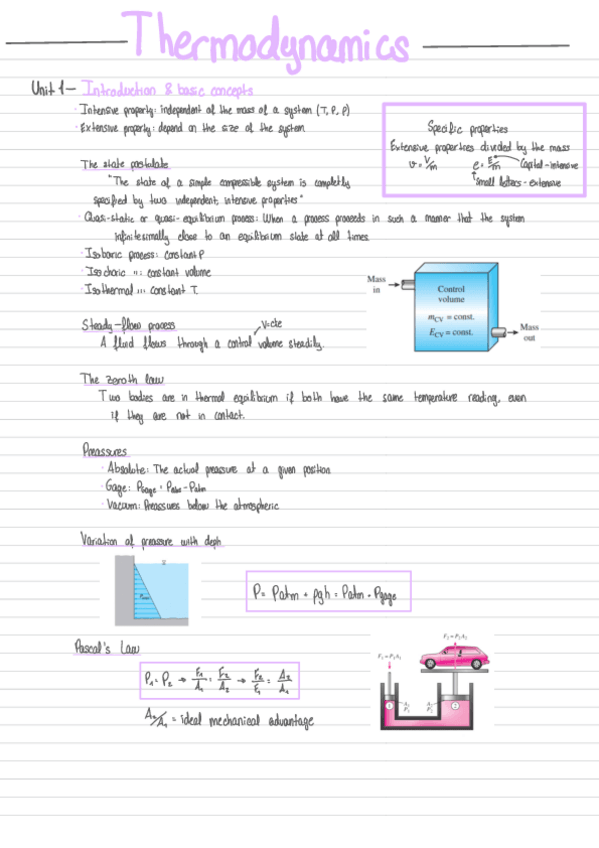 Thermodynamics
Unit 1 - Introduction & basic concepts
· Intensive property: independent of the mass of a system (T, P, ρ)
· Extensive property: depend on the size of the system
Specific properties
Extensive properties divided by the mass
v = V/m e = E/m Capital - intensive
small letters - extensive
The state postulate
"The state of a simple compressible system is completly
specified by two independent, intensive properties"
· Quasi-static or quasi-equilibrium process: When a process proceeds in such a manner that the system
infinitesimally close to an equilibrium state at all times
· Isobaric process: constant P
· Isochoric " : constant volume
· Isothermal " : constant T.
Mass
in
Control
volume
mCV = const.
ECV = const.
Mass
out
Steady-flow process
V=cte
A fluid flows through a control volume steadily.
The zeroth law
Two bodies are in thermal equilibrium if both have the same temperature reading, even
if they are not in contact.
Preassures
· Absolute: The actual preassure at a given position
· Gage: Pgage = Pabs - Patm
· Vacum: Preassures below the atmospheric
Variation of preassure with deph
P = Patm + ρgh = Patm + Pgage
Pascal's Law
P1 = P2 → F1/A1 = F2/A2 → F2/F1 = A2/A1
A2/A1 = ideal mechanical advantage
F2 = P2A2
F1 = P1A1
A1
P1
A2
P2
1
2